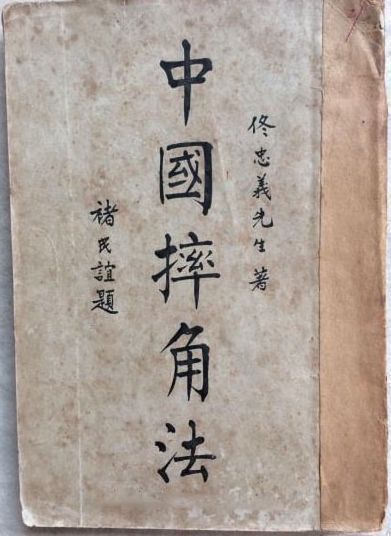 佟忠義先生著
中國摔角法
褚民誼題